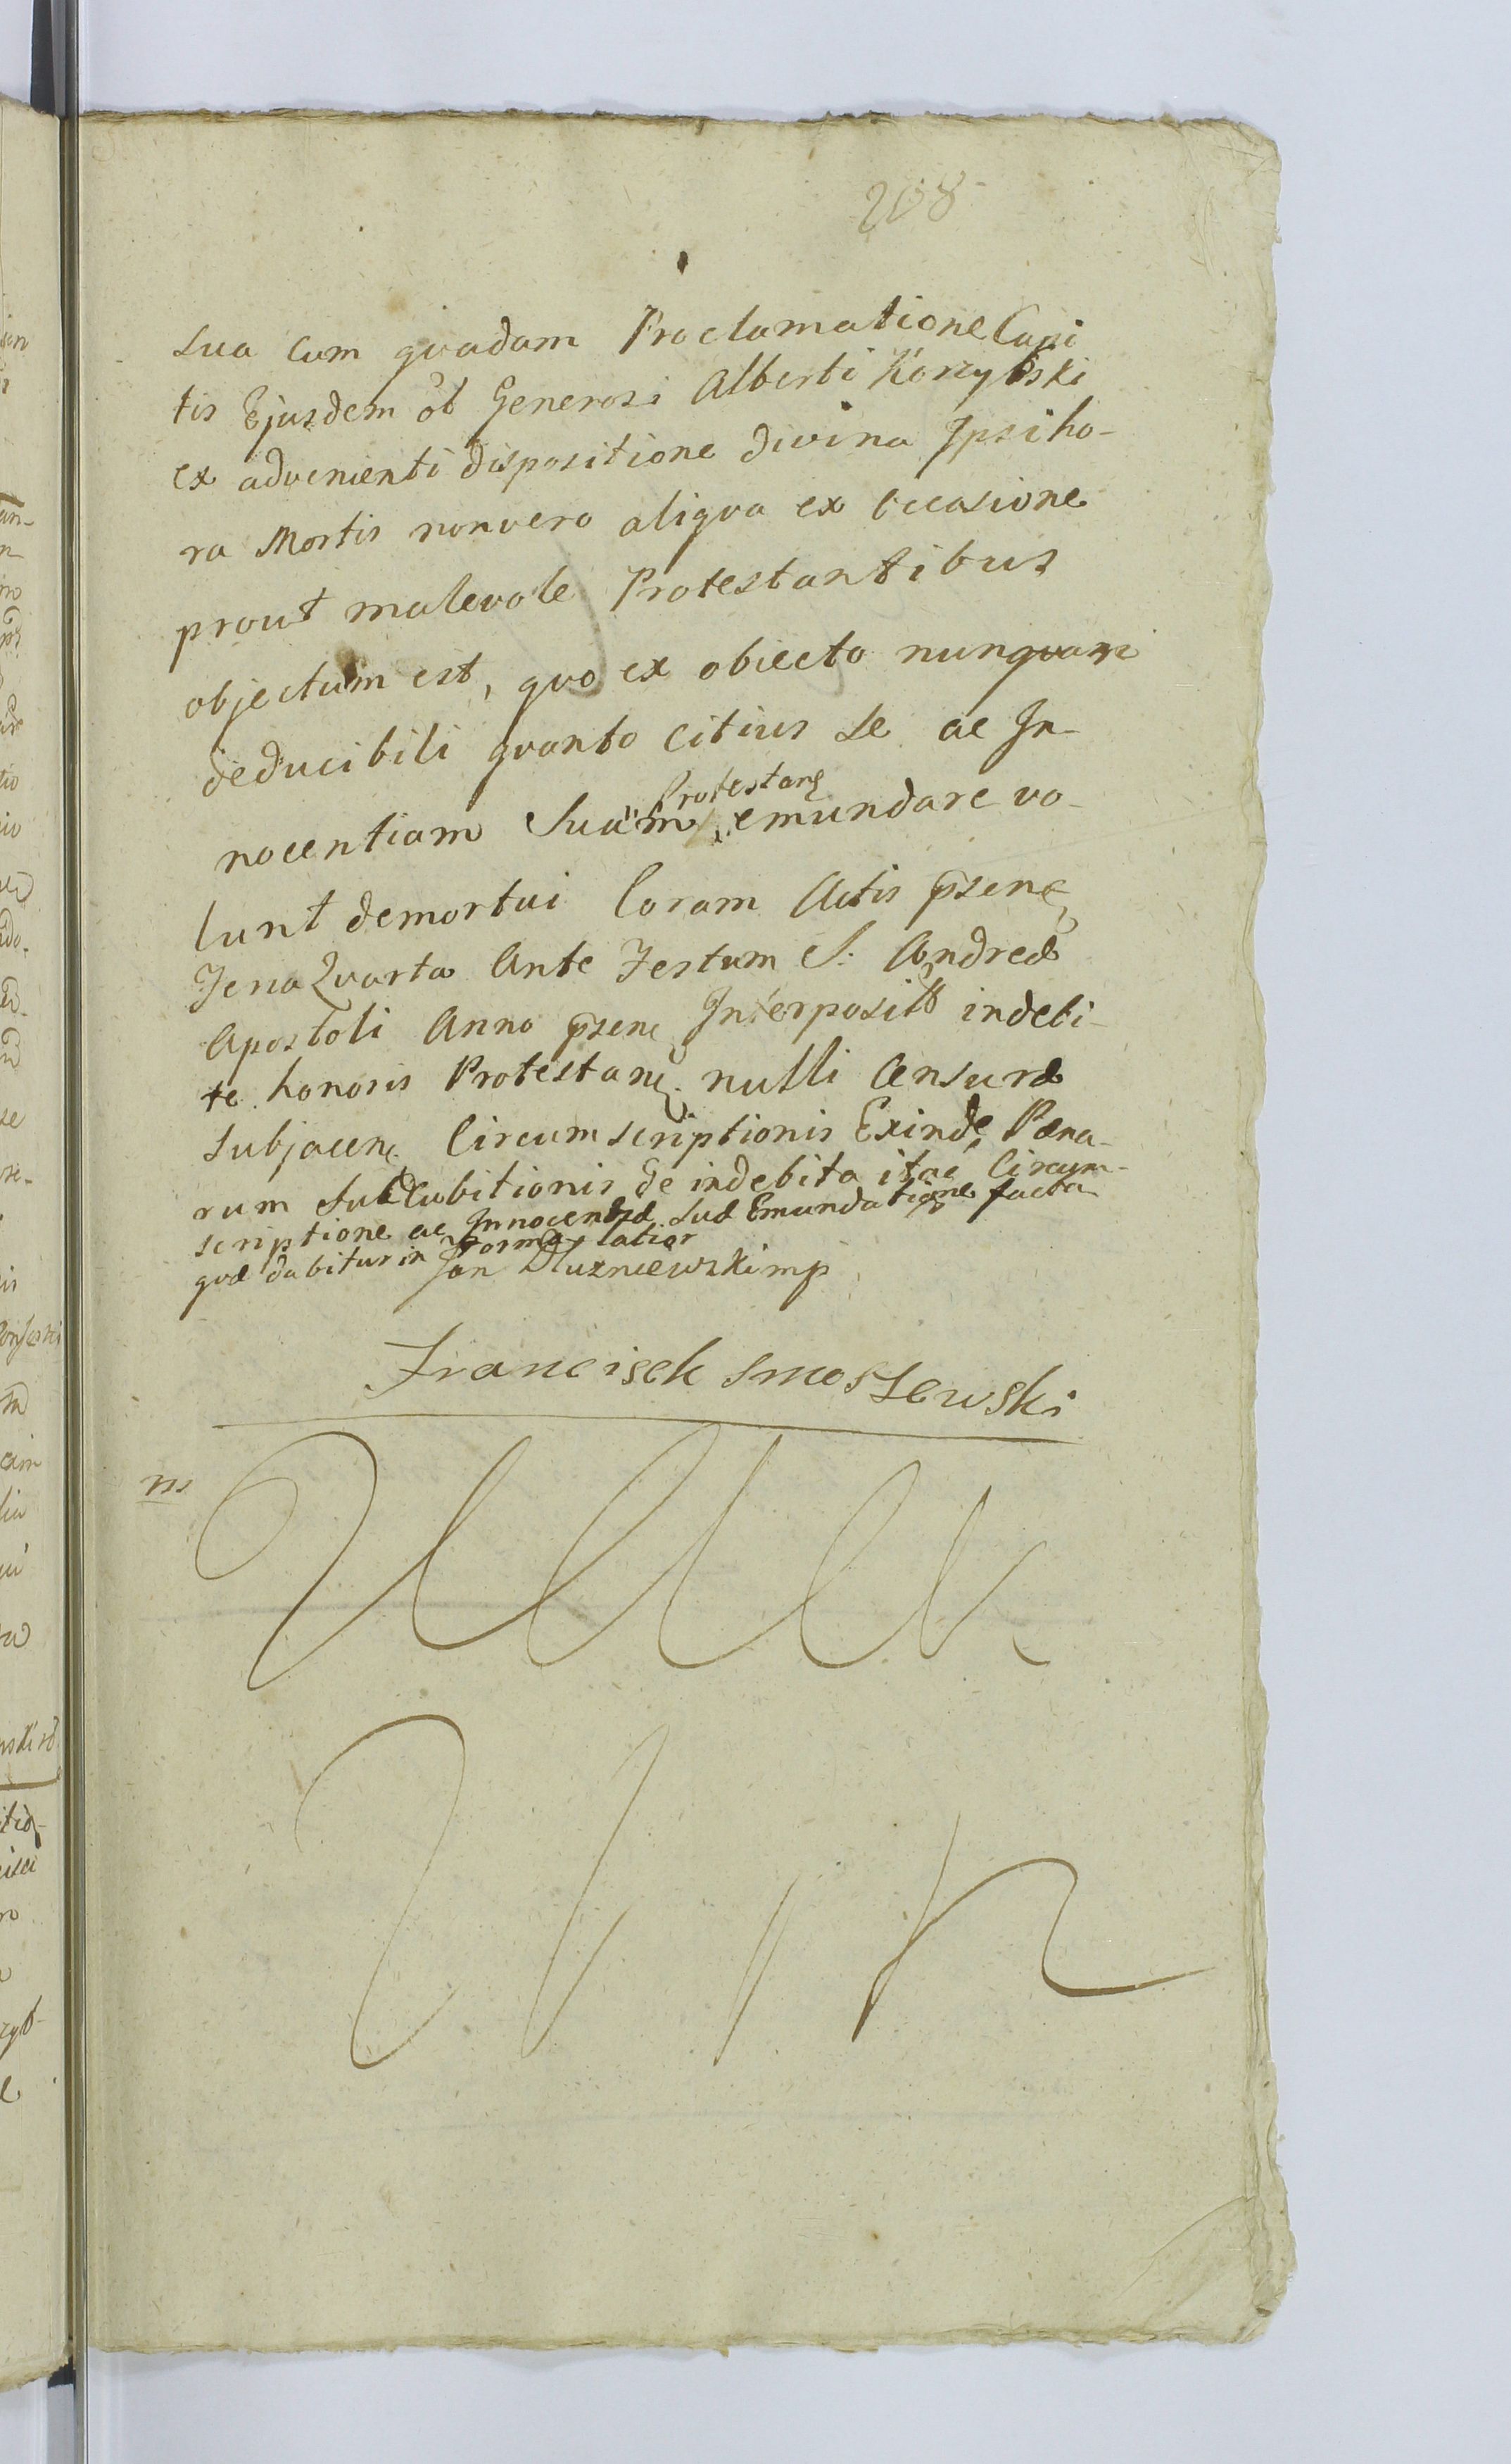 208
sua cum qvadam Proclamatione Capi
tis Ejusdem ob Generosi Alberti Korzybski
ex advenienti dispositione divina Ipsi ho-
ra Mortis nonvero aliqva ex occasione
prout malevole Protestantibus
objectum est, qvo ex obiecto nunqvam
deducibili qvanto citius se ac In-
nocentiam Suam Protestanę emundare vo-
lunt demortui Coram Actis p̄senę
Feria Qvarta Ante Festum S. Andreæ
Apostoli Anno p̄senę Interposit indebi-
te honoris Protestanę nulli Censuræ
Subjacenę Circumscriptionis Exinde Pæna-
rum Succubitionis de indebita itae Circum-
scriptione ac Innocentiæ Suæ Emundatione facta
qvæ dabitur in Forma latior
Jan Dłuzniewski mp
Francisek Smoszewski
ms